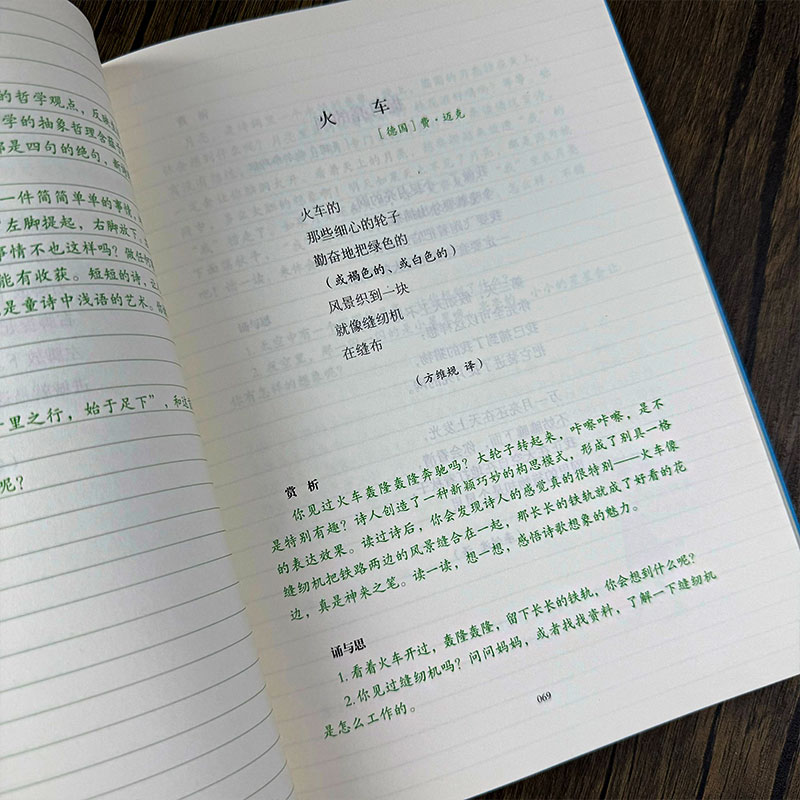 的哲学观点，反映
学的抽象哲理含蕴
那是四句的绝句，
一件简简单单的事情，
左脚提起，右脚放下，
事情不也这样吗？做任何
能有收获。短短的诗，
是童诗中浅语的艺术。
里之行，始于足下”，和这
呢？
火 车
［德国］费·迈克
火车的
那些细心的轮子
勤奋地把绿色的
（或褐色的、或白色的）
风景织到一块
就像缝纫机
在缝布
（方维规 译）
赏 析
你见过火车轰隆轰隆奔驰吗？大轮子转起来，咔嚓咔嚓，是不
是特别有趣？诗人创造了一种新颖巧妙的构思模式，形成了别具一格
的表达效果。读过诗后，你会发现诗人的感觉真的很特别——火车像
缝纫机把铁路两边的风景缝合在一起，那长长的铁轨就成了好看的花
边，真是神来之笔。读一读，想一想，感悟诗歌想象的魅力。
诵与思
1. 看着火车开过，轰隆轰隆，留下长长的铁轨，你会想到什么呢？
2. 你见过缝纫机吗？问问妈妈，或者找找资料，了解一下缝纫机
是怎么工作的。
069